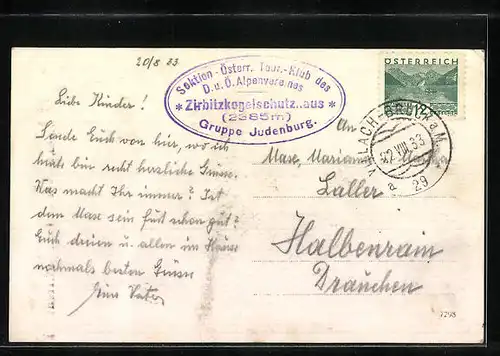 20/8 33
Sektion Österr. Tour.-Klub des
D.u.Ö. Alpenvereines
* Zirbitzkogelschutz.aus *
(2385m)
Gruppe Judenburg.
ÖSTERREICH
VILLACH-BRUCK a. M.
22 VIII 33
a 29
Liebe Kinder!
Sende Euch von hier, wo ich
heute bin recht herzliche Grüsse.
Was macht Ihr immer? Ist
dem Maxe sein Fuß schon gut?
Euch dreien u. allen im Hause
nochmals besten Grüsse
Euer Vater
An
Maxe, Marianne Martha
Laller
Halbenrain
Drauchen
7298